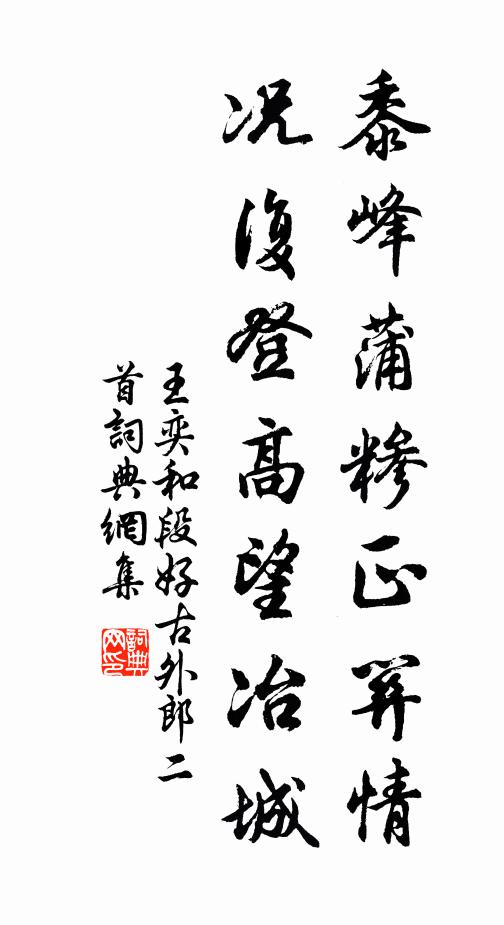 黍峰蒲糝正關情
况復登高望冶城
王奕和段好古外郎二
首詞典網集
詞典
网印